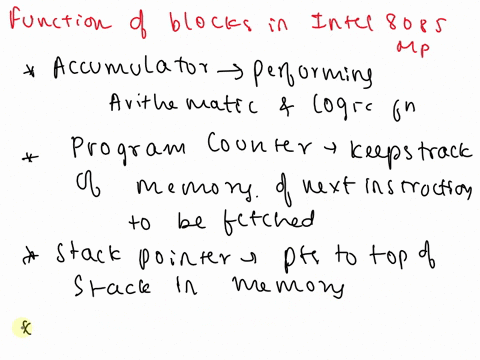 Function of blocks in Intel 8085
μp
* Accumulator → performing
Arithematic & Logic fn
* Program Counter → keeps track
of memory of next instruction
to be fetched
* Stack pointer → pts to top of
Stack in memory
*